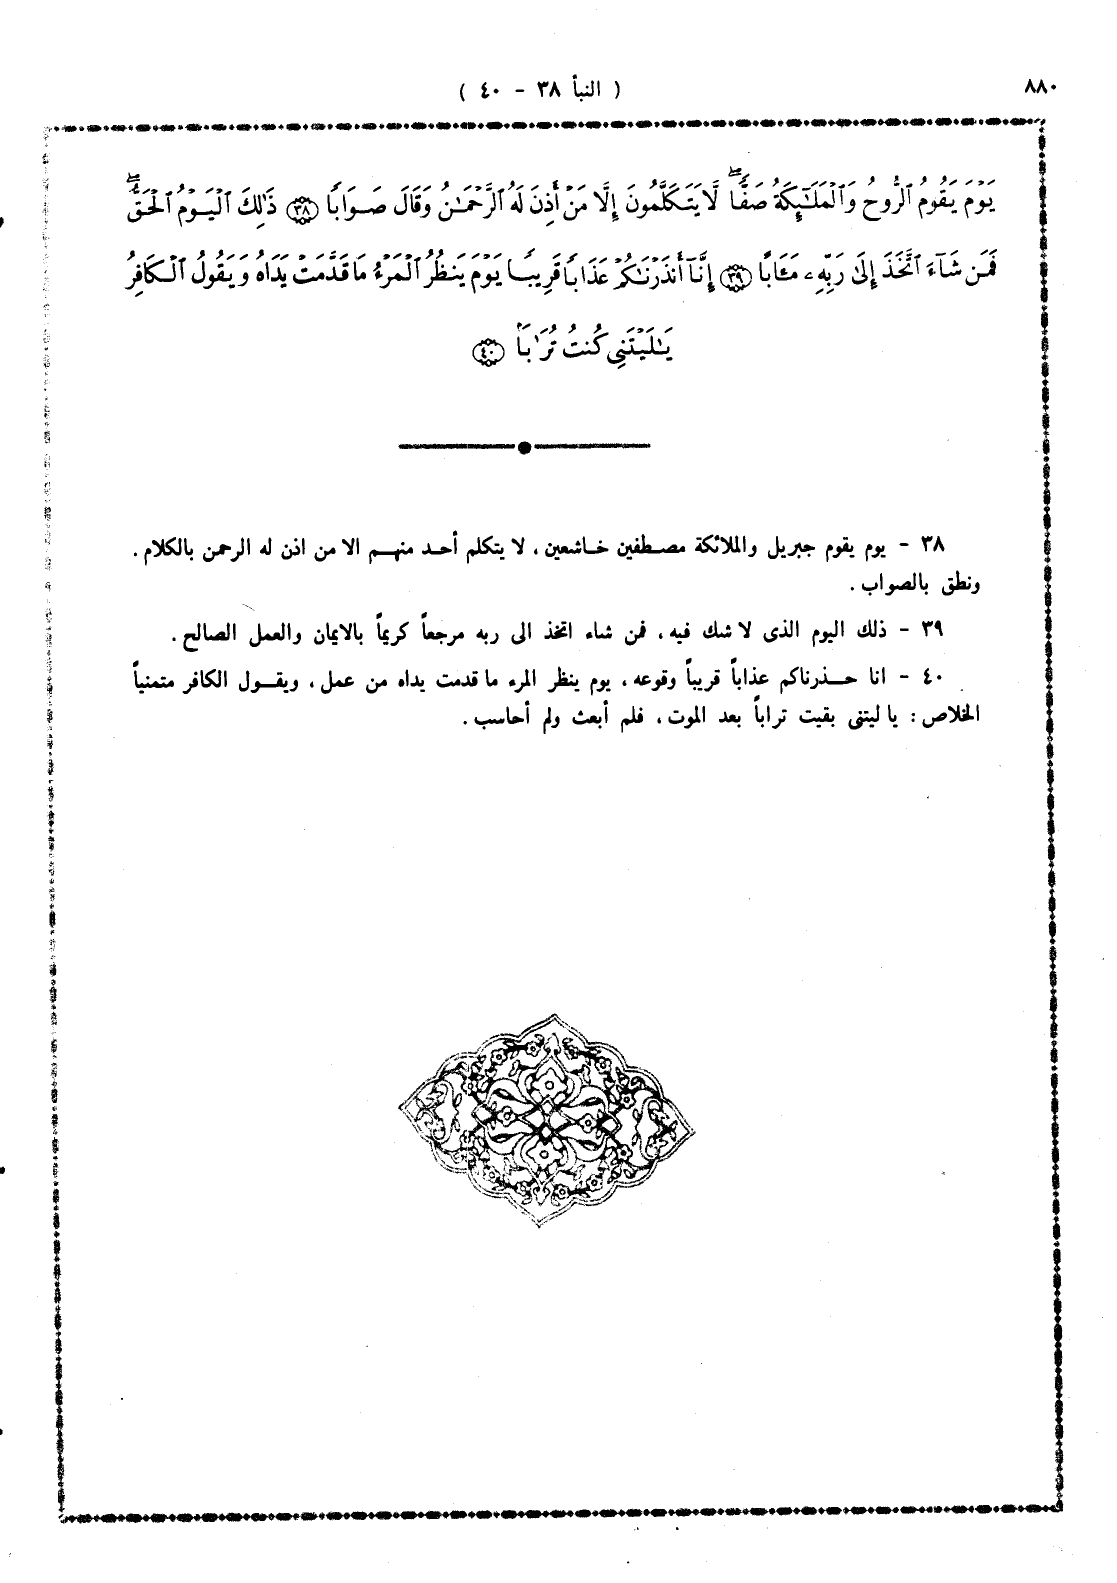 ٨٨٠
( النبأ ٣٨ - ٤٠ )
يَوْمَ يَقُومُ ٱلرُّوحُ وَٱلْمَلَـٰٓئِكَةُ صَفًّاۖ لَّا يَتَكَلَّمُونَ إِلَّا مَنْ أَذِنَ لَهُ ٱلرَّحْمَـٰنُ وَقَالَ صَوَابًا ﴿٣٨﴾ ذَٰلِكَ ٱلْيَوْمُ ٱلْحَقُّۖ
فَمَن شَآءَ ٱتَّخَذَ إِلَىٰ رَبِّهِۦ مَـَٔابًا ﴿٣٩﴾ إِنَّآ أَنذَرْنَـٰكُمْ عَذَابًا قَرِيبًا يَوْمَ يَنظُرُ ٱلْمَرْءُ مَا قَدَّمَتْ يَدَاهُ وَيَقُولُ ٱلْكَافِرُ
يَـٰلَيْتَنِى كُنتُ تُرَٰبًا ﴿٤٠﴾
٣٨ - يوم يقوم جبريل والملائكة مصطفين خاشعين ، لا يتكلم أحد منهم الا من اذن له الرحمن بالكلام .
ونطق بالصواب .
٣٩ - ذلك اليوم الذى لا شك فيه ، فمن شاء اتخذ الى ربه مرجعاً كريماً بالايمان والعمل الصالح .
٤٠ - انا حذرناكم عذاباً قريباً وقوعه ، يوم ينظر المرء ما قدمت يداه من عمل ، ويقول الكافر متمنياً
الخلاص : يا ليتنى بقيت تراباً بعد الموت ، فلم أبعث ولم أحاسب .